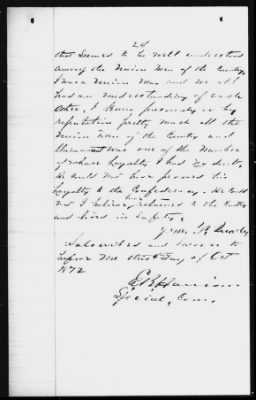 24
that seemed to be well understood
among the Union Men of the County
I was a Union Man and we all
had an understanding of each
other. I knew personally or by
reputation pretty much all the
Union Men of the County and
was one of the Number
of whose Loyalty I had no doubt.
He could not have proved his
Loyalty to the Confederacy. He could
not I believe have returned to the County
and lived in Safety.
Subscribed and Sworn to
before me this day of Oct
1872
E B Harrison
Special Com.